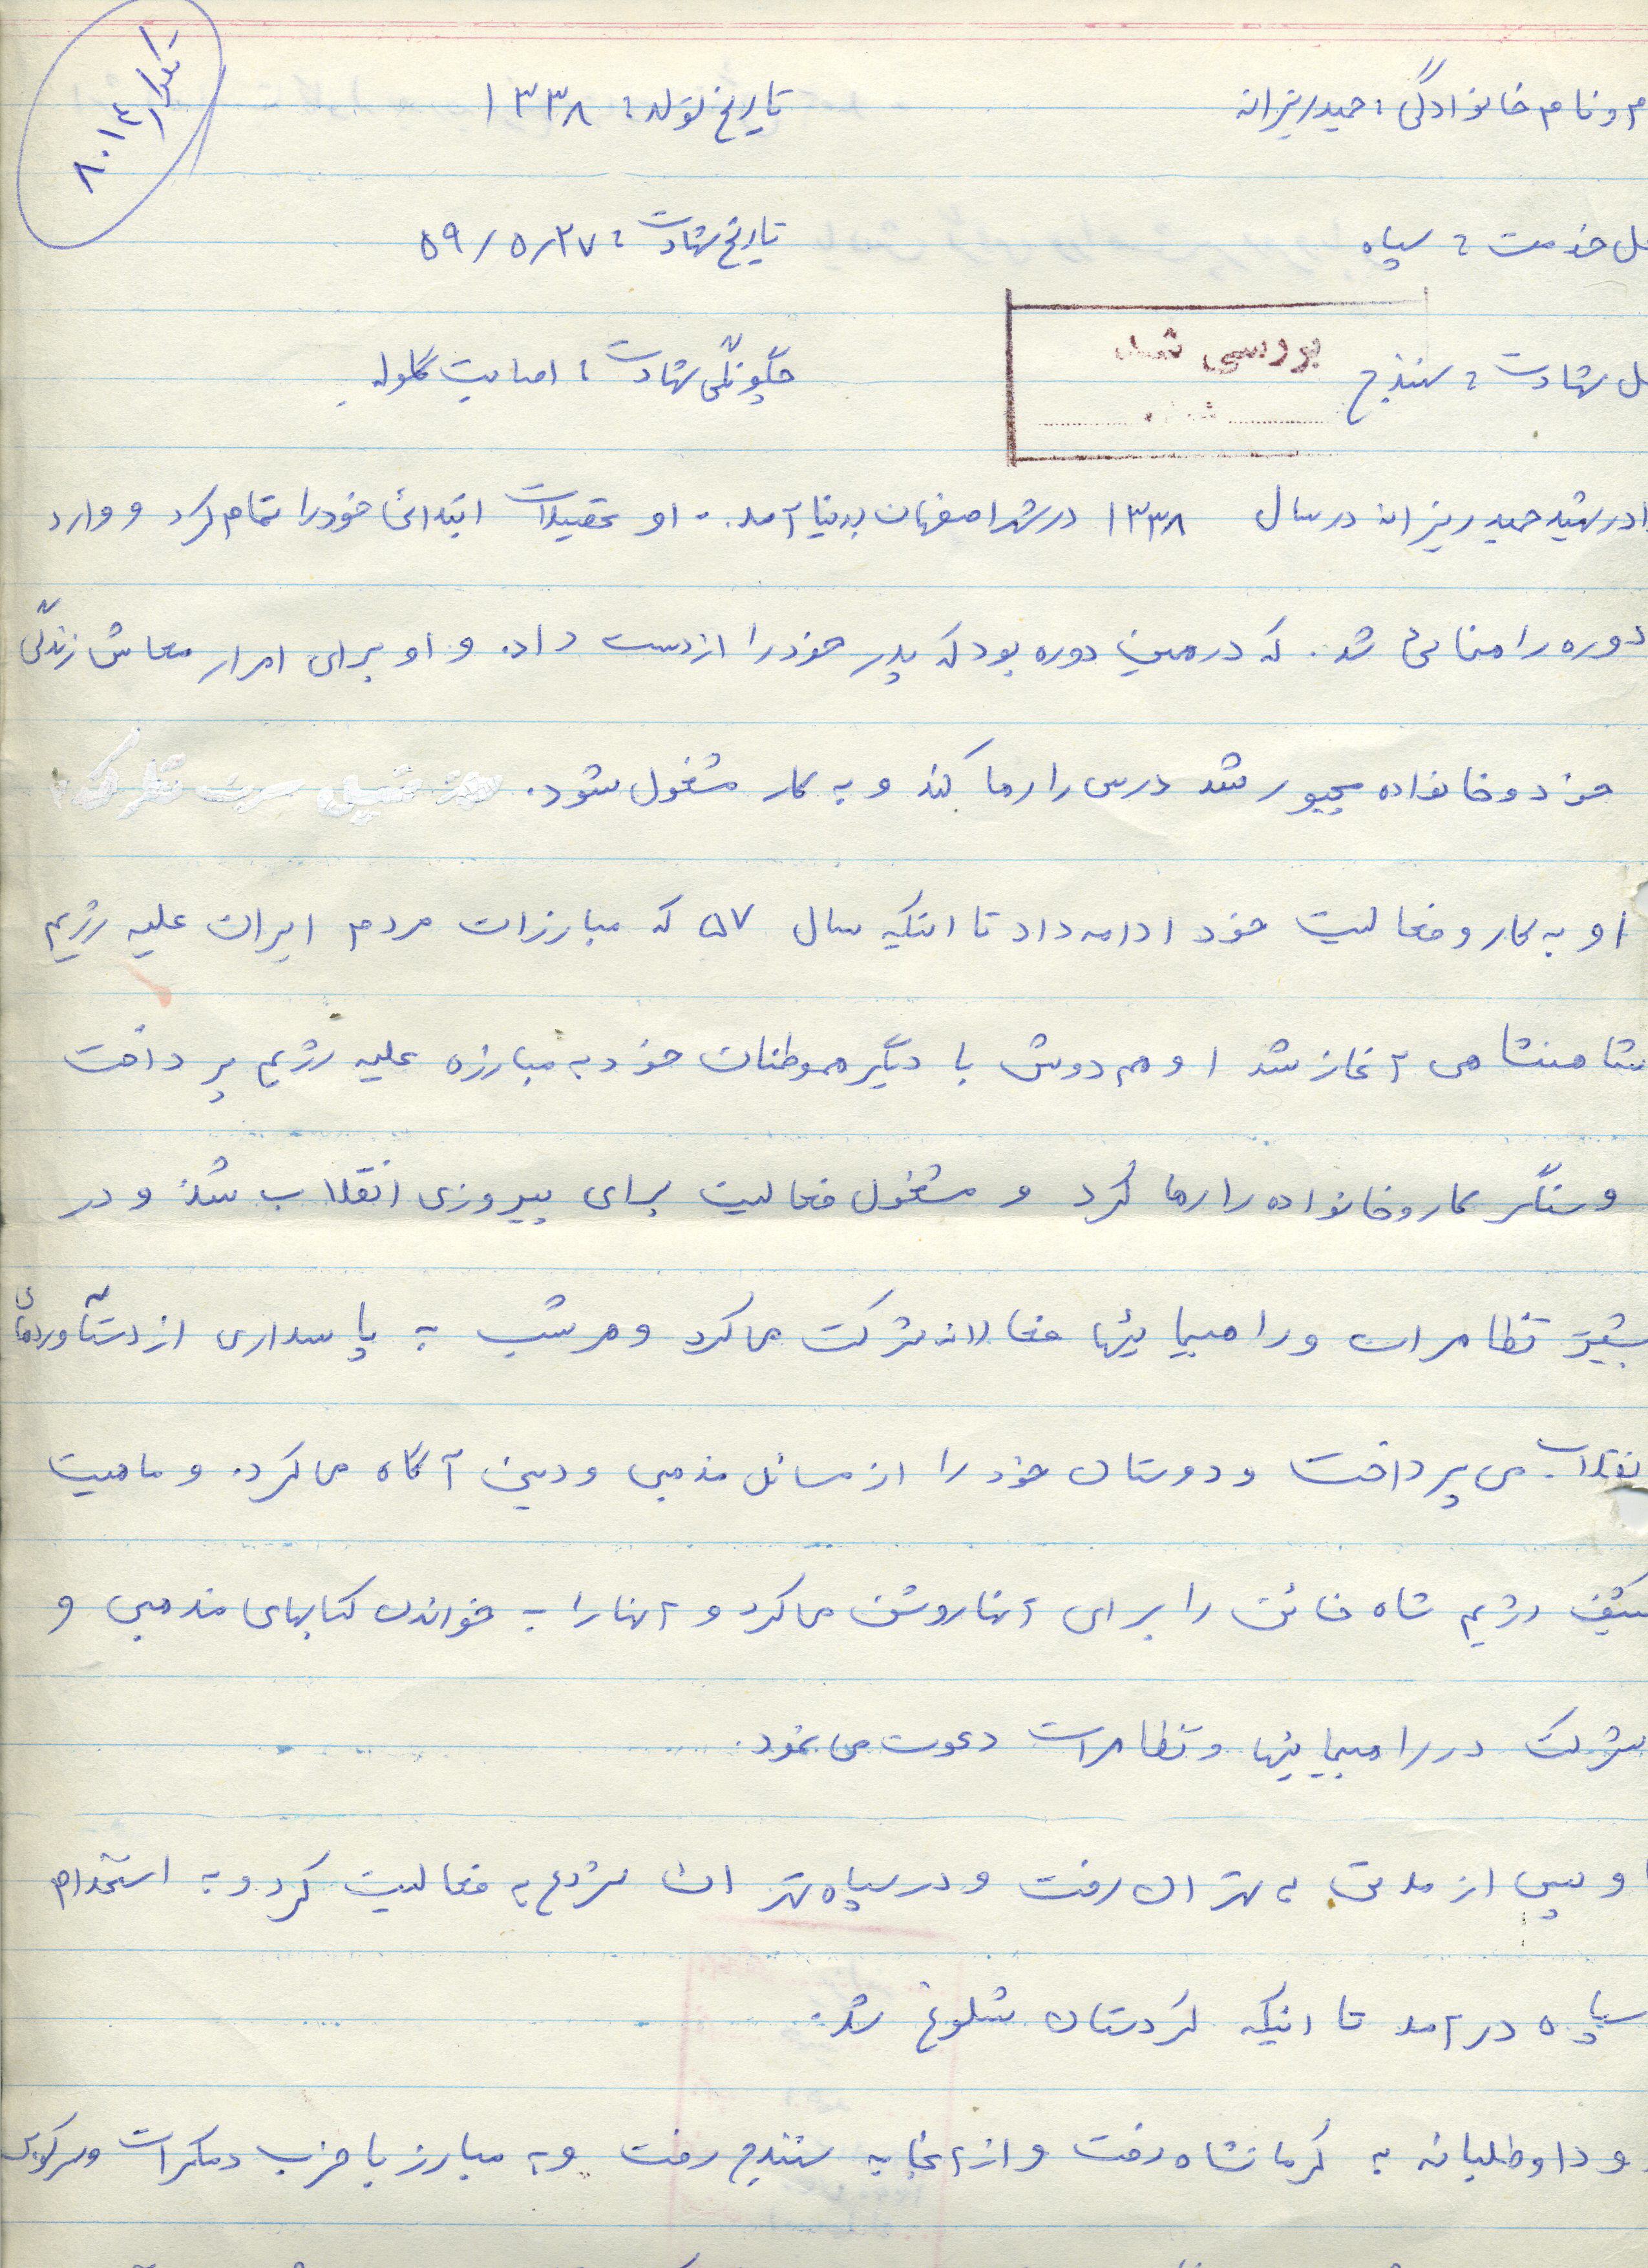 تکرار
۸۰۱۴
م و نام خانوادگی : حمید ریزانه تاریخ تولد : ۱۳۳۸
ل خدمت : سپاه تاریخ شهادت : ۵۹/۵/۲۷
ل شهادت : سنندج چگونگی شهادت : اصابت گلوله
بررسی شد
ادر شهید حمید ریزانه در سال ۱۳۳۸ در شهر اصفهان بدنیا آمد . او تحصیلات ابتدائی خود را تمام کرد و وارد
دوره راهنمائی شد . که در همین دوره بود که پدر خود را از دست داد . و او برای امرار معاش زندگی
خود و خانواده مجبور شد درس را رها کند و به کار مشغول شود .
او به کار و فعالیت خود ادامه داد تا اینکه سال ۵۷ که مبارزات مردم ایران علیه رژیم
شاهنشاهی آغاز شد او هم دوش با دیگر هموطنان خود به مبارزه علیه رژیم پرداخت
و سنگر کار و خانواده را رها کرد و مشغول فعالیت برای پیروزی انقلاب شد و در
بیشتر تظاهرات و راهپیمائیها فعالانه شرکت می کرد و هر شب به پاسداری از دستآوردهای
نقلاب می پرداخت و دوستان خود را از مسائل مذهبی و دینی آگاه می کرد . و ماهیت
کثیف رژیم شاه خائن را برای آنها روشن می کرد و آنها را به خواندن کتابهای مذهبی و
شرکت در راهپیمائیها و تظاهرات دعوت می نمود .
او پس از مدتی به تهران رفت و در سپاه تهران شروع به فعالیت کرد و به استخدام
سپاه در آمد تا اینکه کردستان شلوغ شد .
و داوطلبانه به کرمانشاه رفت و از آنجا به سنندج رفت و به مبارز با حزب دمکرات و سرکوبی